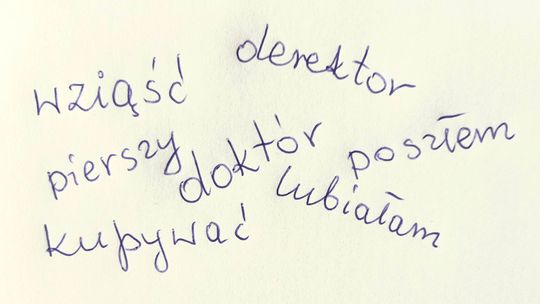 derektor
wziąść
pierszy doktór poszłem
lubiałam
kupywać